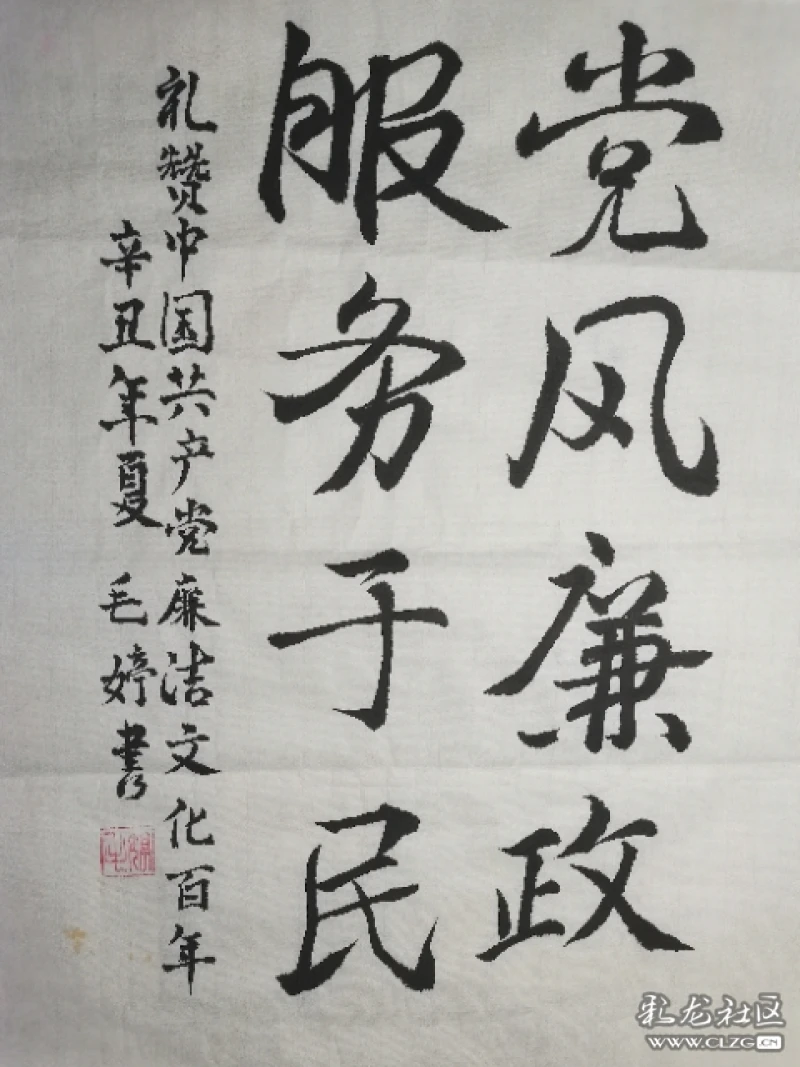 党风廉政
服务于民
礼赞中国共产党廉洁文化百年
辛丑年夏 毛婷书
彩龙社区
WWW.CLZG.CN